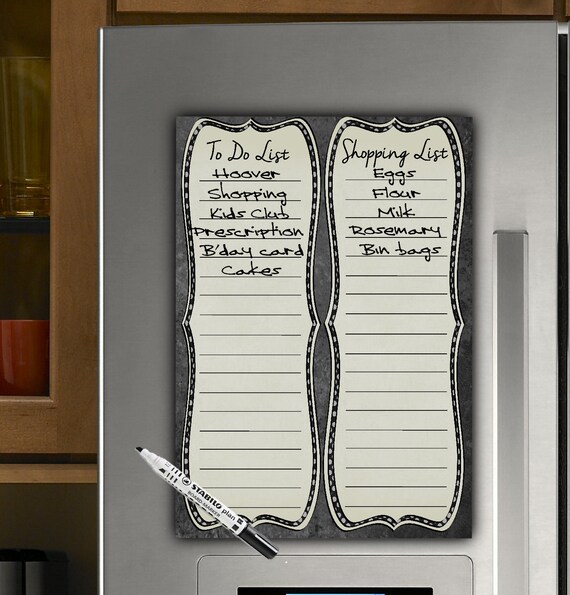 To Do List
Hoover
Shopping
Kids Club
Prescription
B'day card
Cakes
Shopping List
Eggs
Flour
Milk
Rosemary
Bin bags
STABILO plan
BOARD-MARKER